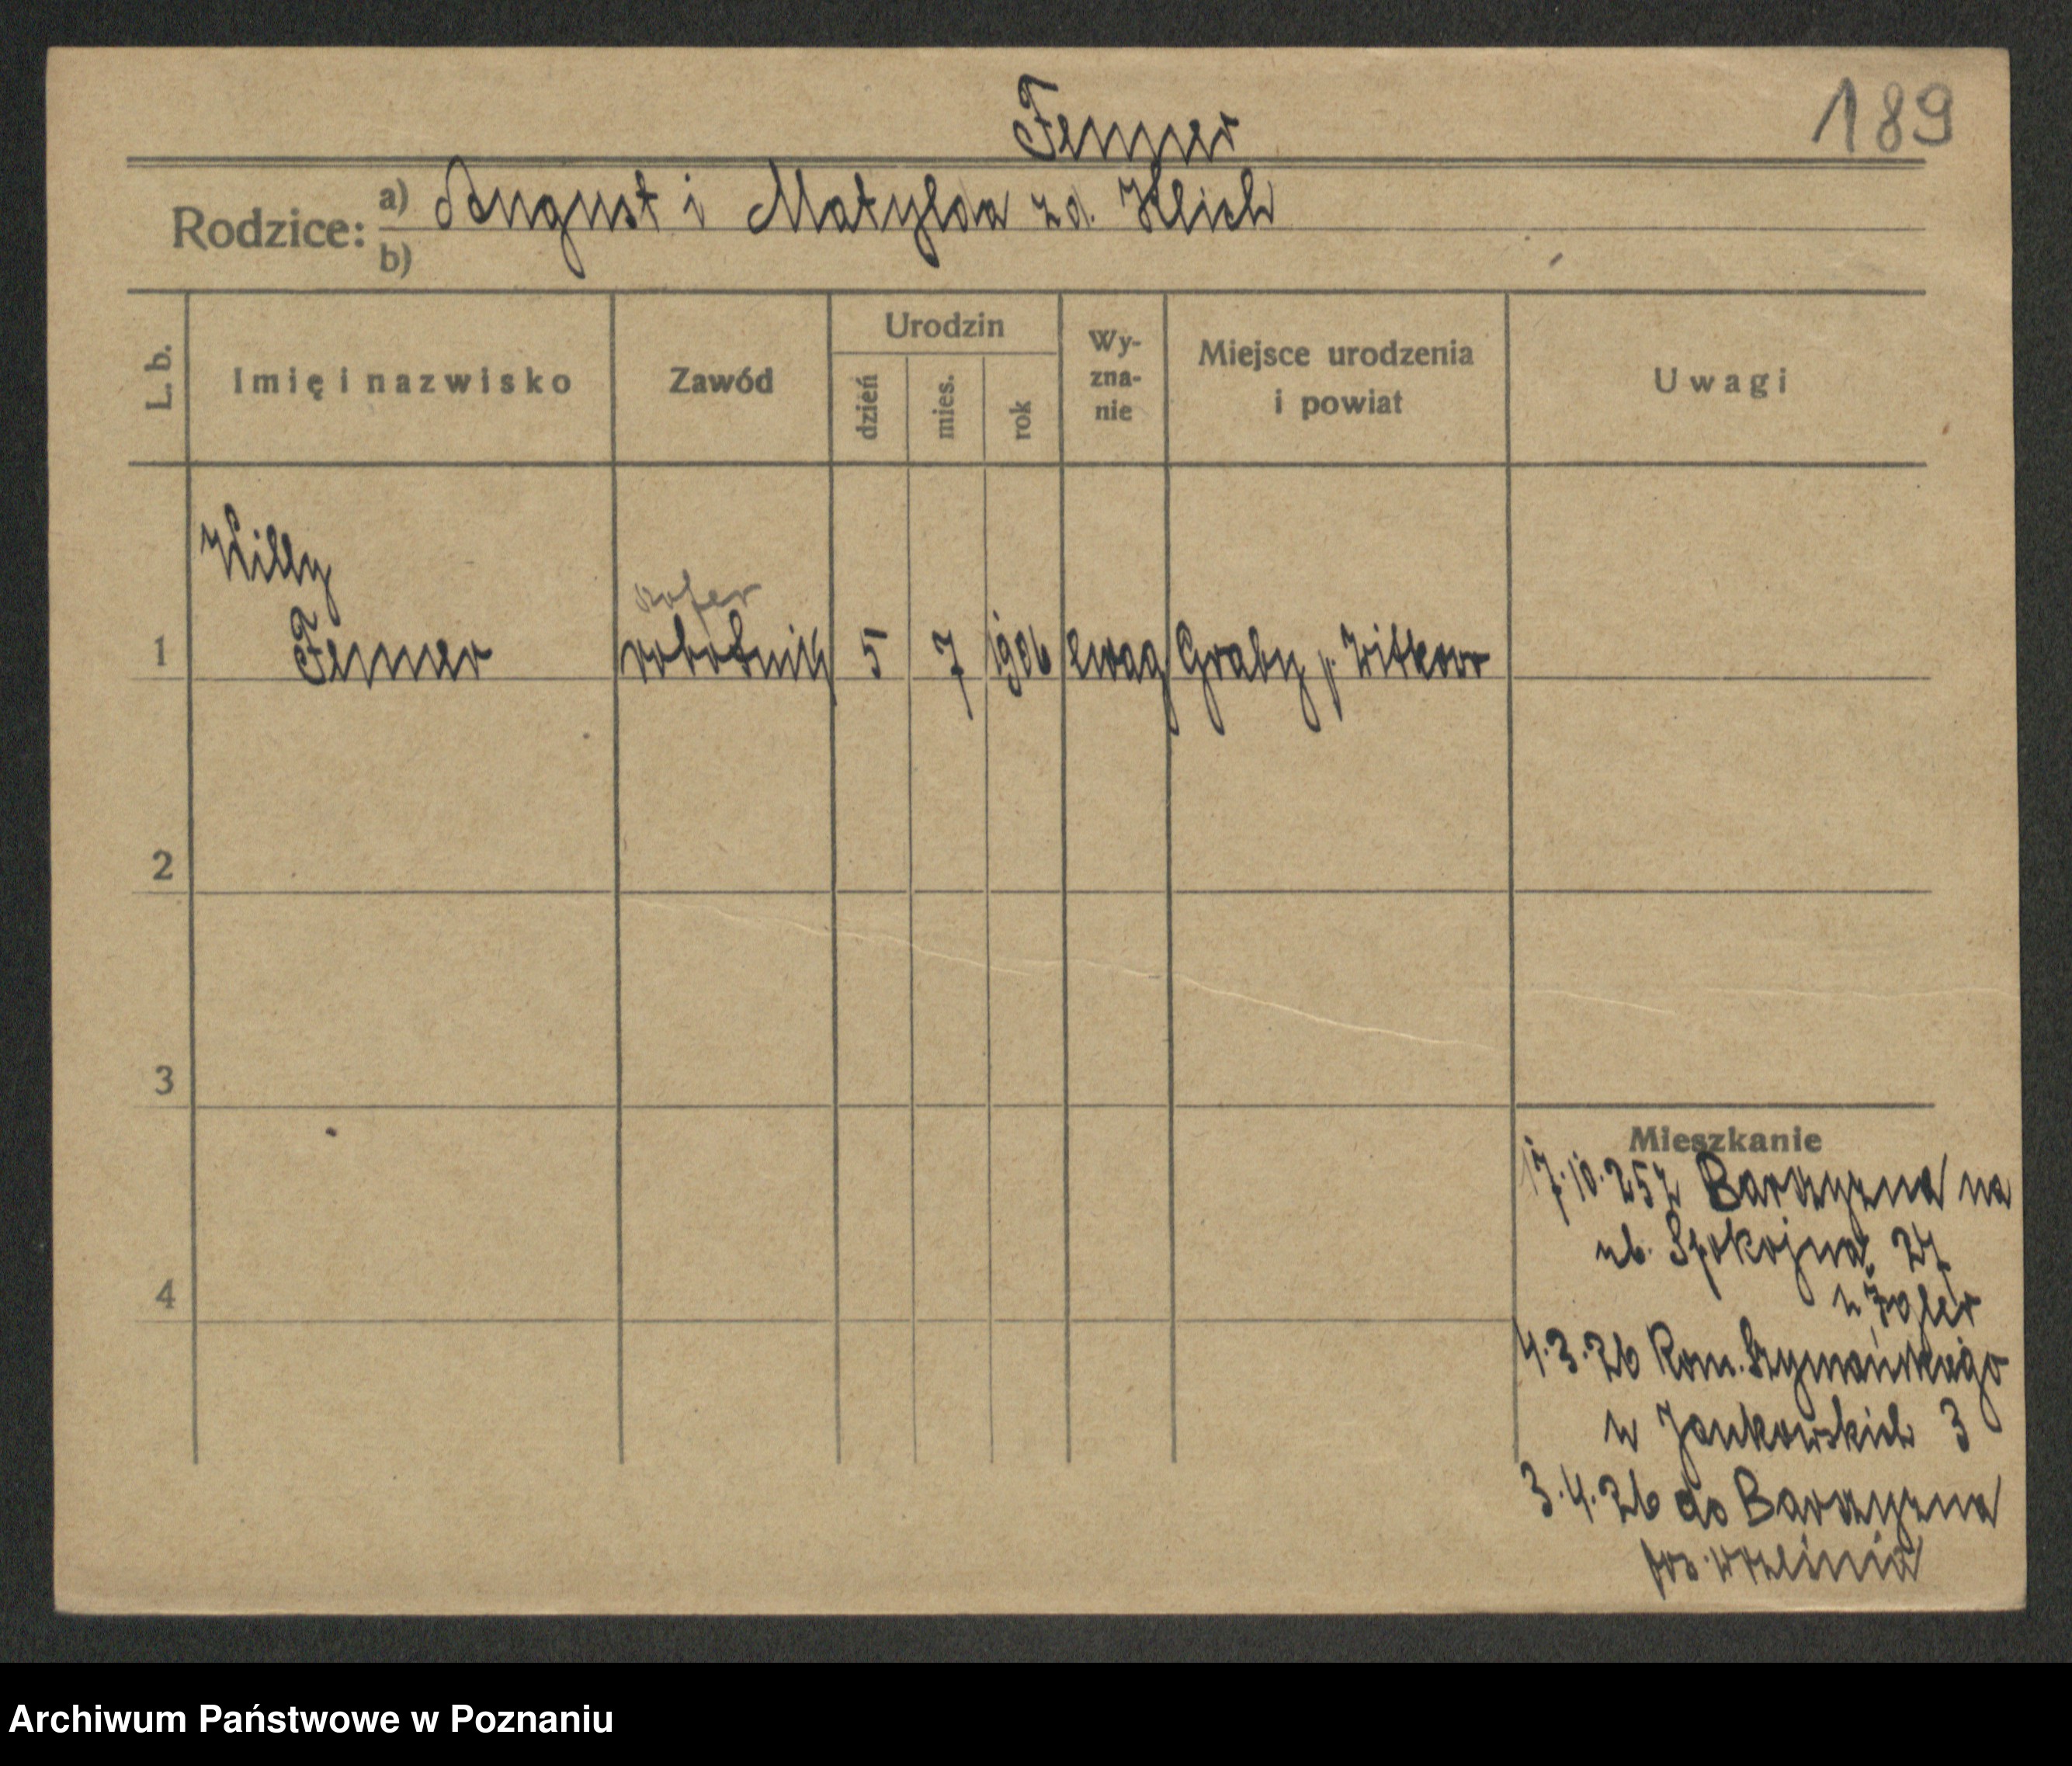 Fenner
189
Rodzice: a) August i Matylda zd. Klich
b)
L. b.
Imię i nazwisko
Zawód
Urodzin
dzień
mies.
rok
Wy-
zna-
nie
Miejsce urodzenia
i powiat
Uwagi
Willy
szofer
1 Fenner robotnik 5 7 1906 ewag Graby p. Witkowo
2
3
4
Mieszkanie
17.10.25 z Barczyzna na
ul. Spokojna 27
u
4.3.26 Rom. Szymańskiego
u Jankowskich 3
3.4.26 do Barczyzna
pow. września
Archiwum Państwowe w Poznaniu